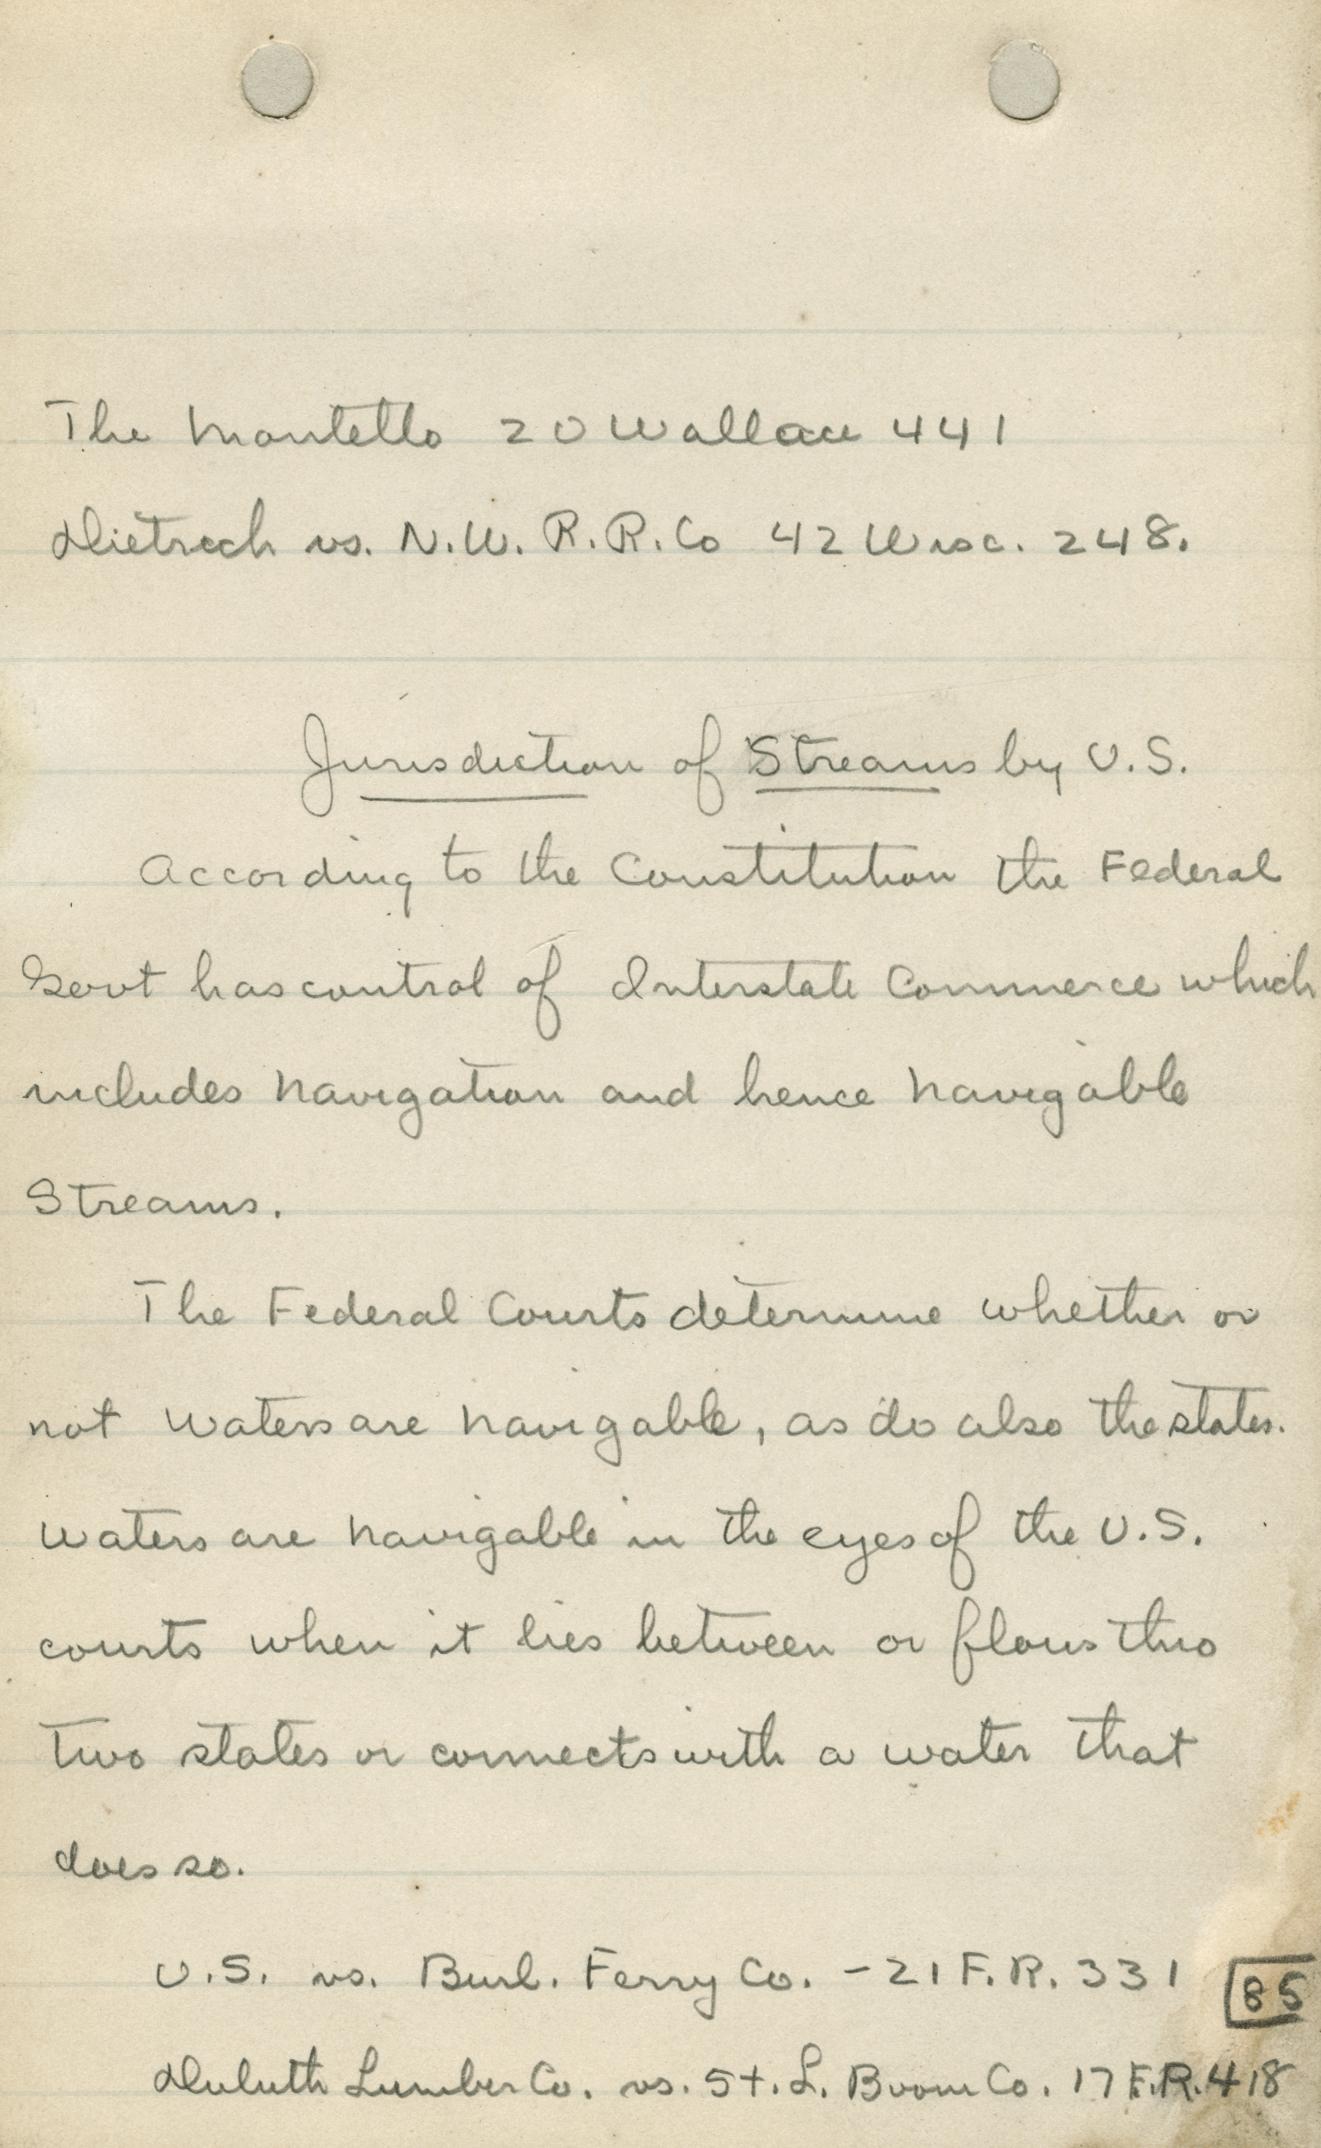 The Montello 20 Wallace 441
Dietrech vs. N.W. R.R. Co 42 Wisc. 248.
Jurisdiction of Streams by U.S.
According to the Constitution the Federal
Govt has control of Interstate Commerce which
includes navigation and hence navigable
Streams.
The Federal Courts determine whether or
not waters are navigable, as do also the states.
Waters are navigable in the eyes of the U.S.
courts when it lies between or flows thro
two states or connects with a water that
does so.
U.S. vs. Burl. Ferry Co. - 21 F.R. 331
85
Duluth Lumber Co. vs. St. L. Boom Co. 17 F.R. 418